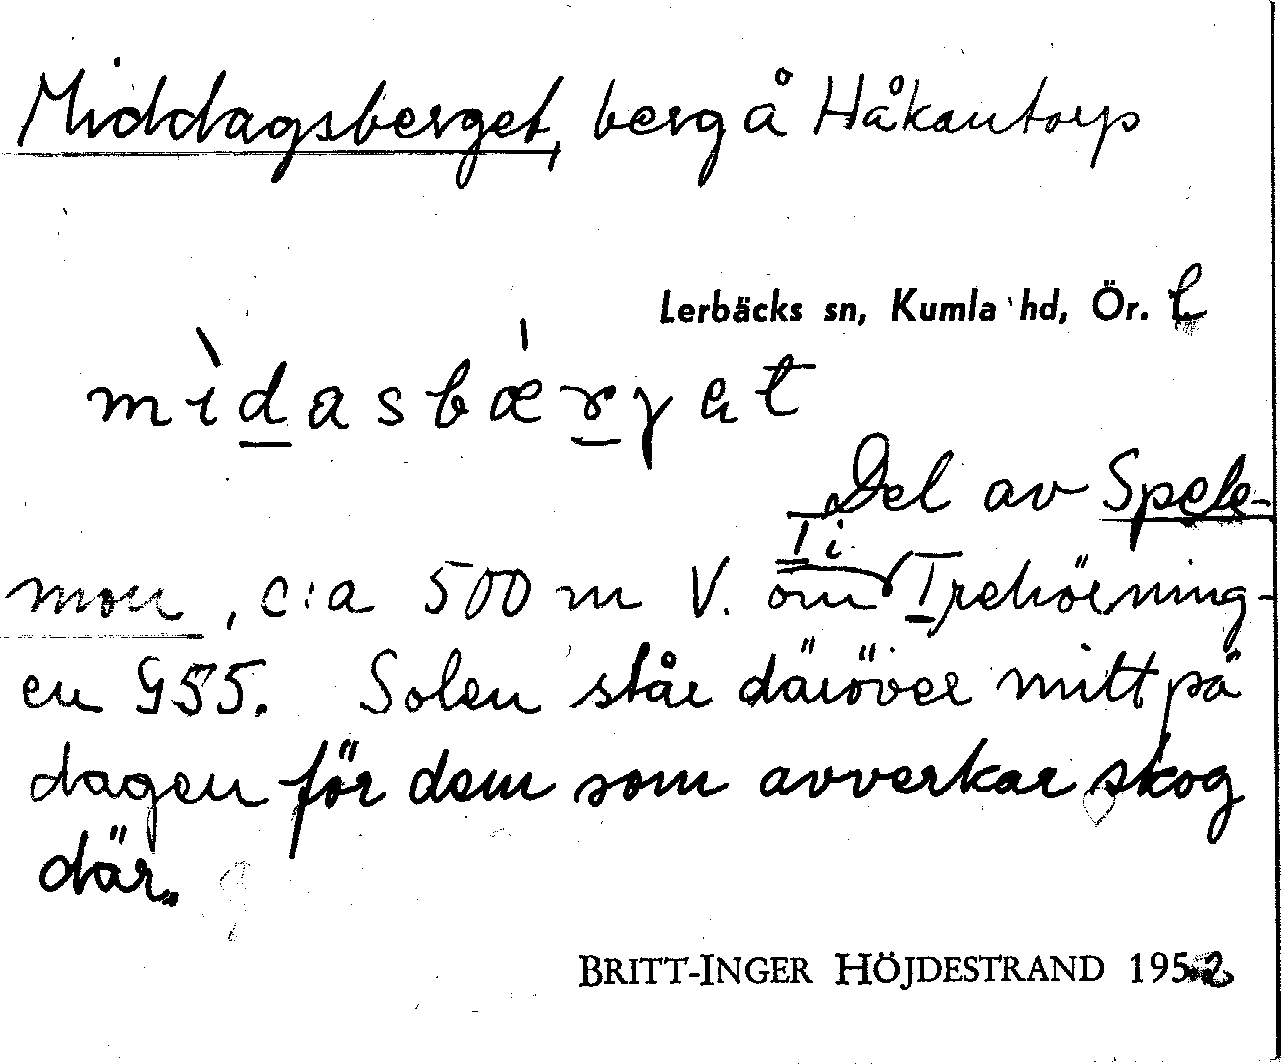 Middagsberget, berg å Håkantorp
Lerbäcks sn, Kumla hd, Ör. l
mìdasbæ̀rγət
Del av Spele-
mon, c:a 500 m V. om Ti Trehörning-
en G55. Solen står däröver mitt på
dagen för dem som avverkar skog
där.
BRITT-INGER HÖJDESTRAND 1952